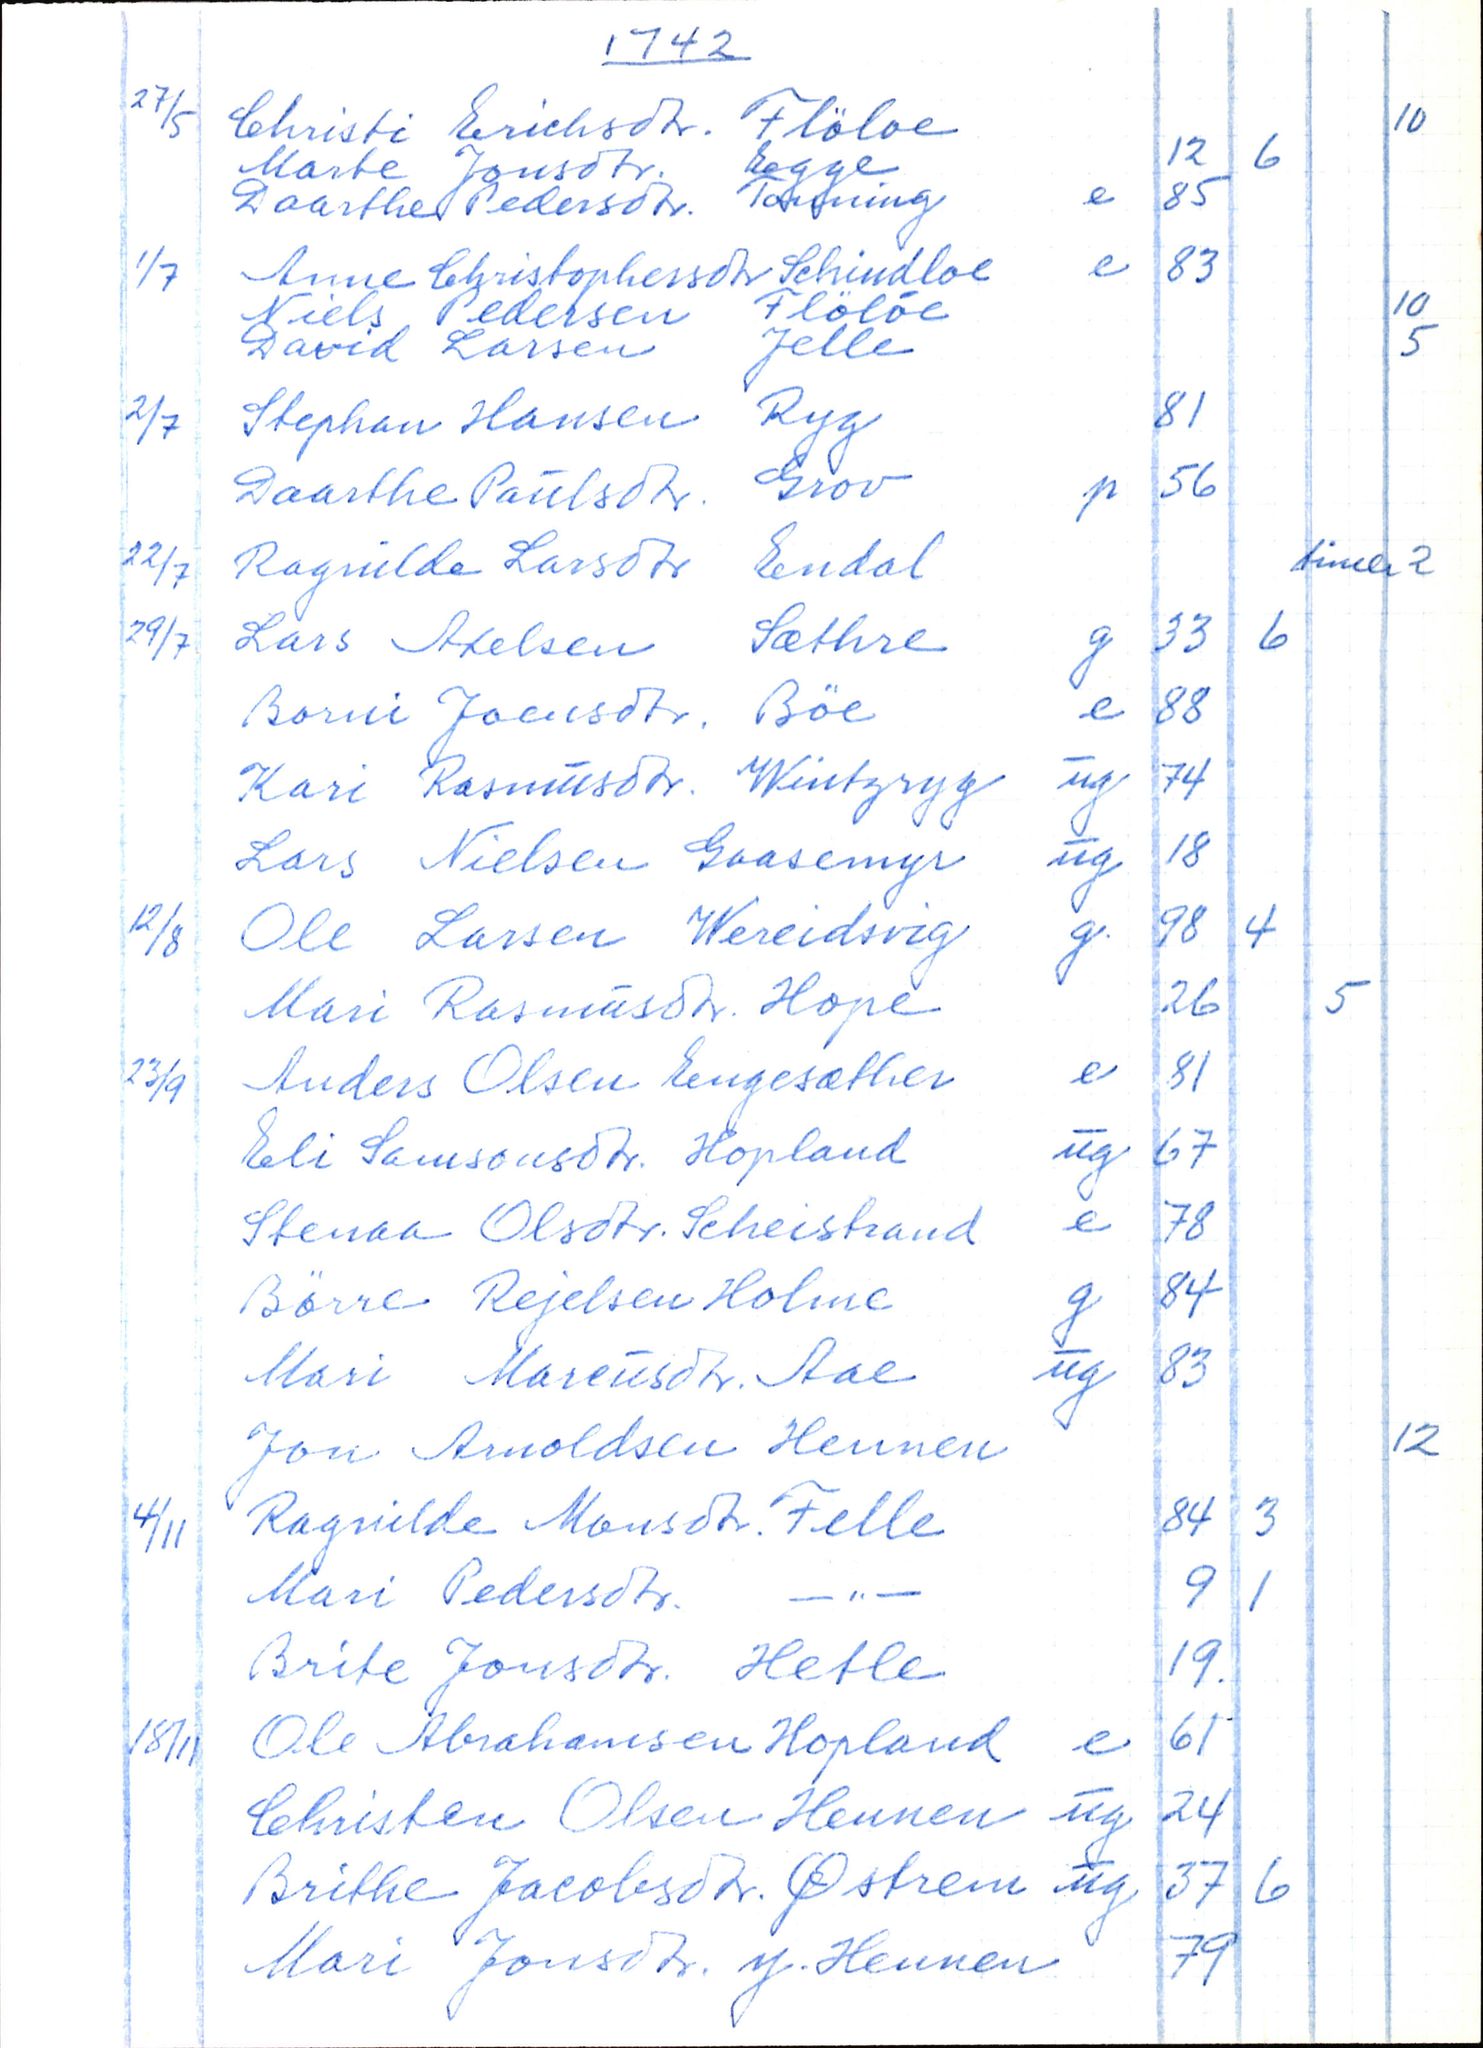 1742
27/5 Christi Erichsdtr. Flöloe 10
Marte Jonsdtr. Egge 12 6
Daarthe Pedersdtr. Tonning e 85
1/7 Anne Christophersdtr Schindloe e 83
Niels Pedersen Flölöe 10
David Larsen Jelle 5
2/7 Stephan Hansen Ryg 81
Daarthe Paulsdtr. Grov p 56
22/7 Ragnilde Larsdtr Endal timer 2
29/7 Lars Axelsen Sæthre g 33 6
Borni Joensdtr. Böe e 88
Kari Rasmusdtr. Wintzryg ug 74
Lars Nielsen Gaasemyr ug 18
12/8 Ole Larsen Wereidsvig g. 98 4
Mari Rasmusdtr. Hope 26 5
23/9 Anders Olsen Engesæther e 81
Eli Samsonsdtr. Hopland ug 67
Stenaa Olsdtr. Scheistrand e 78
Börre Rejelsen Holme g 84
Mari Marcusdtr. Aae ug 83
Jon Arnoldsen Hennen 12
4/11 Ragnilde Monsdtr. Felle 84 3
Mari Pedersdtr. —"— 9 1
Brite Jonsdtr. Hetle 19.
18/11 Ole Abrahamsen Hopland e 61
Christen Olsen Hennen ug 24
Brithe Jacobsdtr. Østrem ug 37 6
Mari Jonsdtr. y. Hennen 79